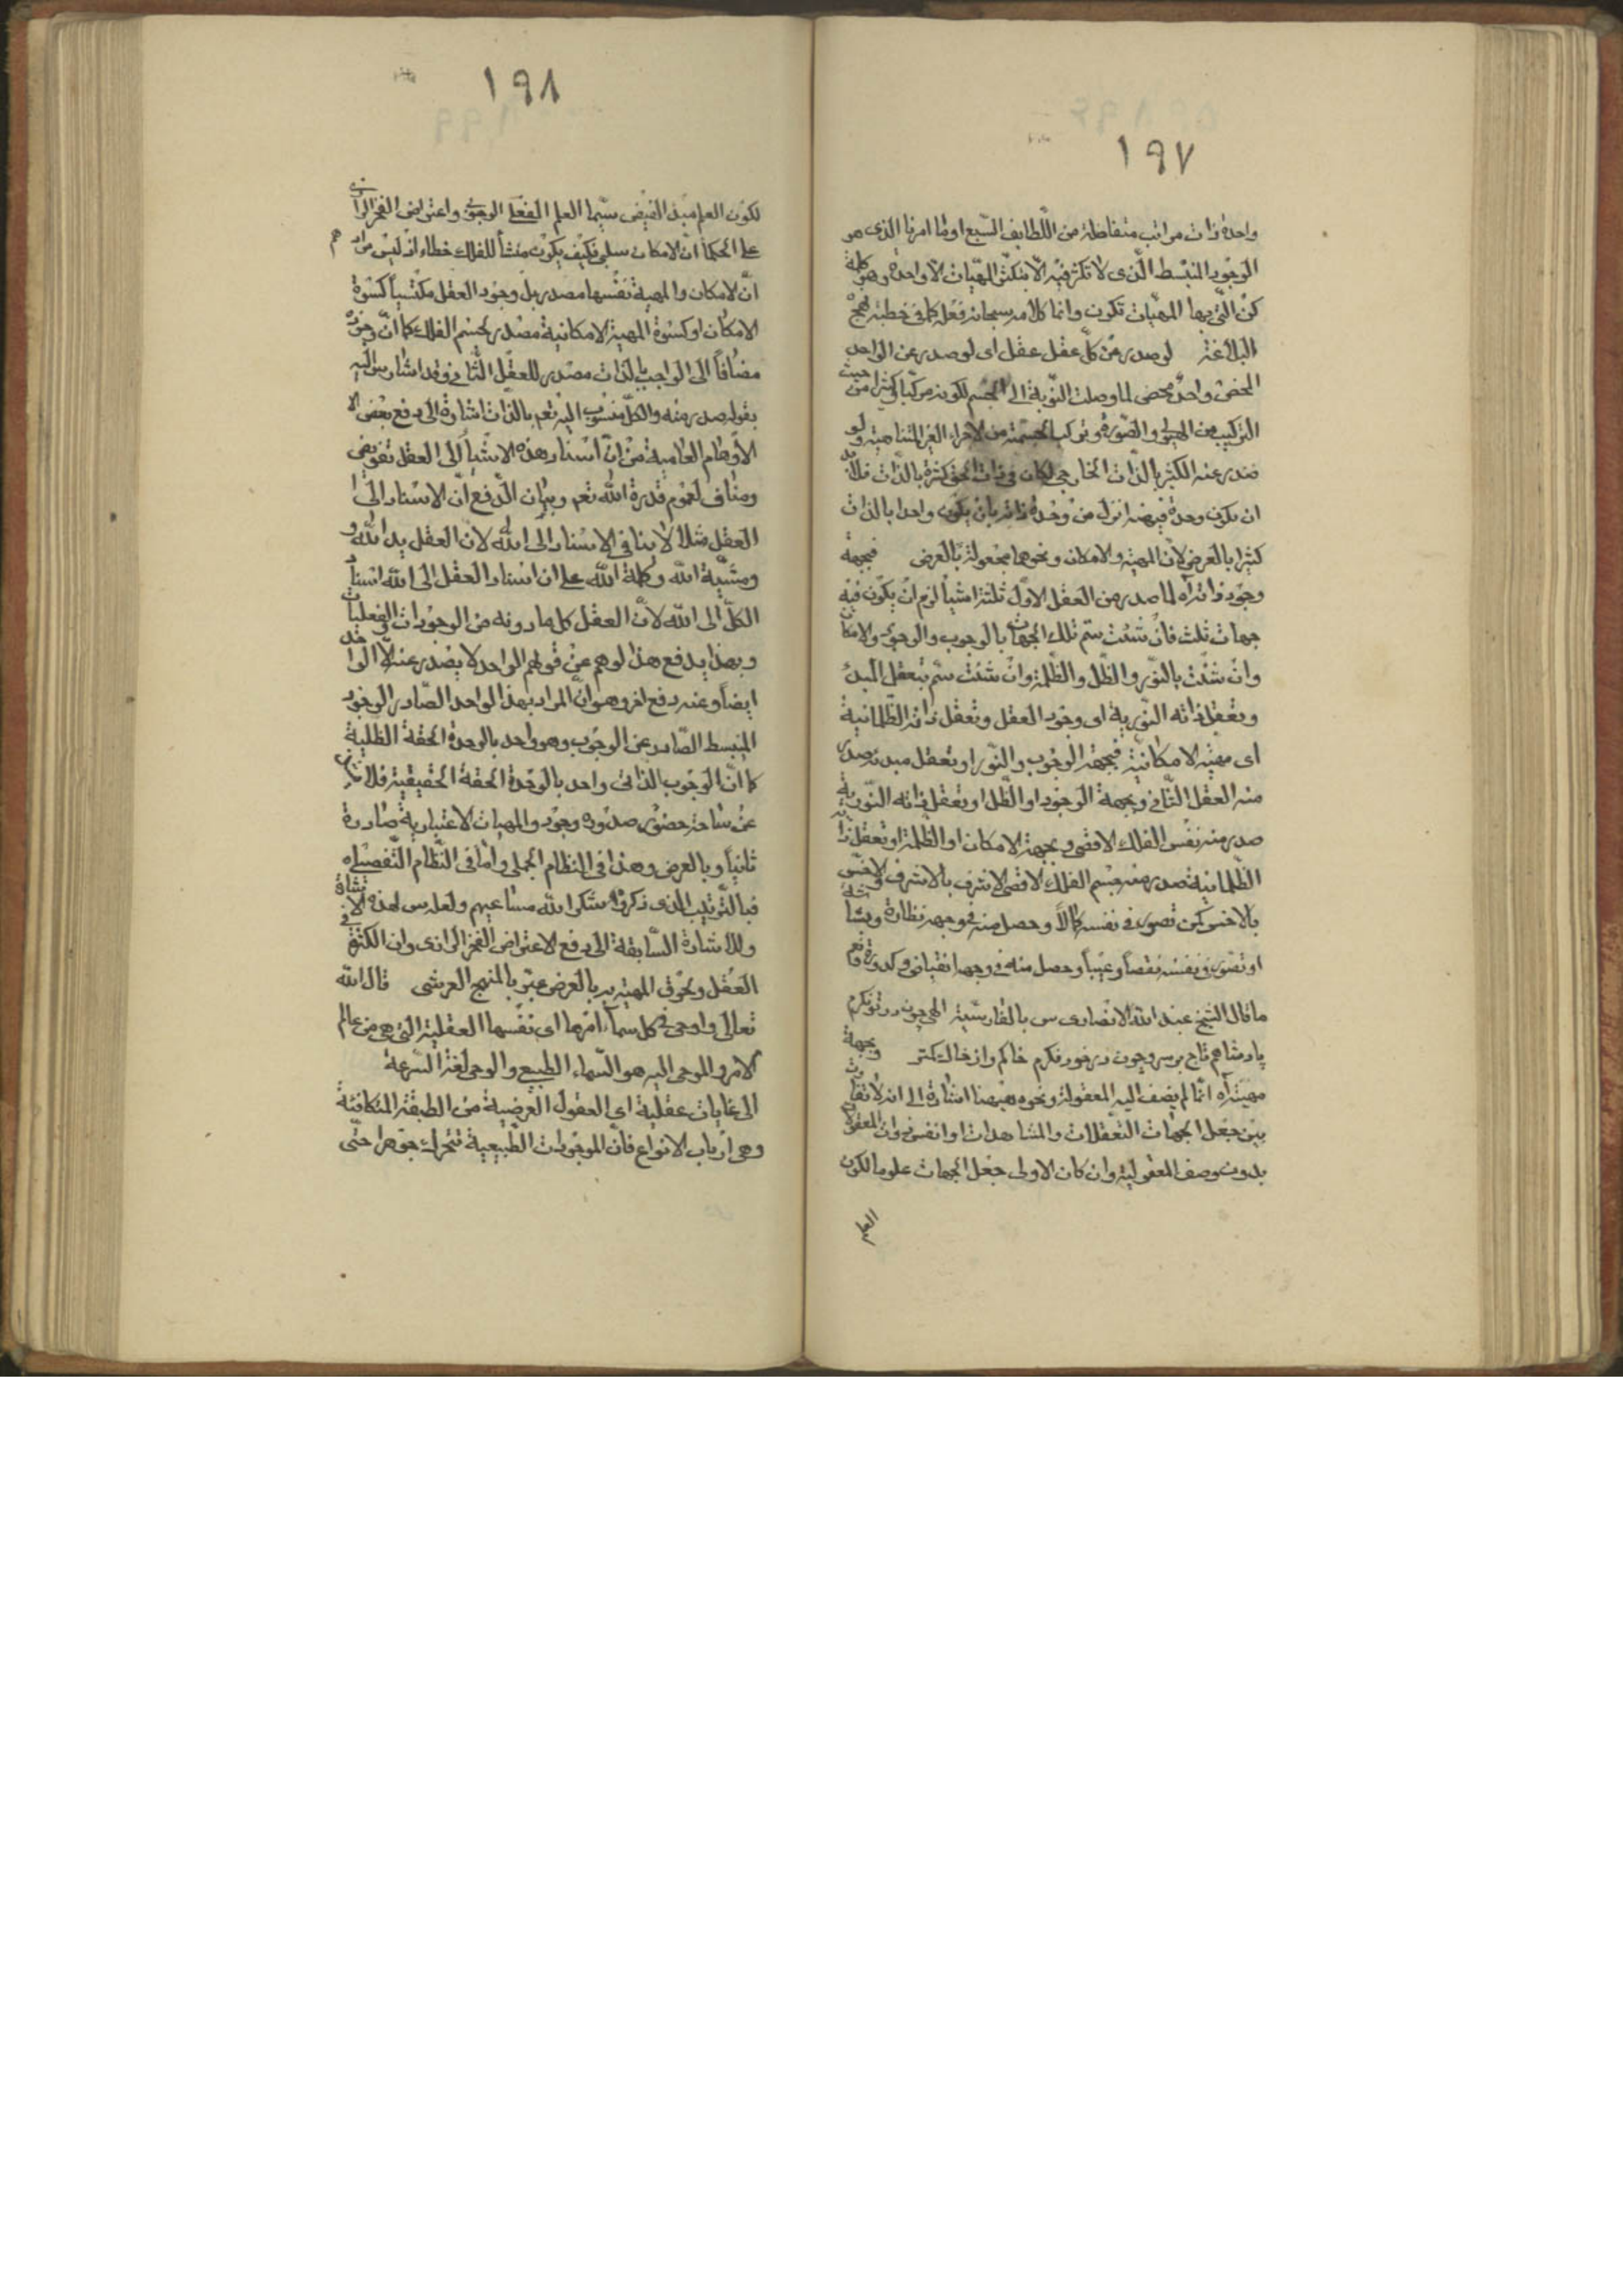 ١٩٧
واحدة ذات مراتب متفاضلة من اللّطايف السّبع او ما امرنا الذى هو
الوجود المنبسط الّذى لا تكثر فيه الّا بتكثّر المهيّات الّا واحدة وهو كلمة
كن الّتى بها المهيّات تكون وانما كلامه سبحانه فعله كما فى خطبة نهج
البلاغة لو صدر عن كلّ عقل عقل اى لو صدر عن الواحد
المحض واحد محض لما وصلت النّوبة الى الجسم لكونه مركّبا كثيرا من حيث
التركيب من الهيولى والصّورة وتركب الجسمية من الاجزاء الغير المتناهية ولو
صدر عنه الكثير بالذّات الخارجى لكان فى ذات الحق كثرة بالذّات فلابد
ان يكون وحدة فيضه انزل من وحدة ذاته بان يكون واحدا بالذات
كثيرا بالعرض لانّ المهية والامكان ونحوهما مجعولة بالعرض فبجهة
وجود ذاته آه لما صدر من العقل الاوّل ثلثة اشياء لزم ان يكون فيه
جهات ثلث فان شئت سمّ تلك الجهات بالوجوب والوجود والامكان
وان شئت بالنّور والظّل والظّلمة وان شئت سمّ بتعقل المبدء
وتعقل ذاته النّورية اى وجود العقل وتعقل ذاته الظّلمانية
اى مهيته الامكانية فبجهة الوجوب والنّور او تعقل مبدئه صدر
منه العقل الثّانى وبجهة الوجود او الظّل او تعقل ذاته النّورية
صدر منه نفس الفلك الاقصى وبجهة الامكان او الظّلمة او تعقل ذاته
الظّلمانية صدر منه جسم الفلك الاقصى الاشرف بالاشرف والاخسّ
بالاخس كمن تصور فى نفسه كمالاً وحصل منه فى وجهه نظارة وبشاشة
او تصور فى نفسه نقصاً وعيباً وحصل منه فى وجهه انقباض وكدورة
ما قال الشيخ عبد الله الانصارى س بالفارسّية الهى چون در تو نگرم
پادشاهم تاج بر سر و چون در خود نگرم خاكم و از خاك كمتر وبجهة
مهيته آه انّما لم يضف اليه المعقولة ونحوه ههنا اشارة الى انه لا تفاوت
بين جعل الجهات التعقلات والمشاهدات او انفس ذوات المعقولات
بدون وصف المعقولية وان كان الاولى جعل الجهات علوما لكون
العلم
١٩٨
لكون العلم مبدء الفيض سيّما العلم الفعلى الوجوبى واعتراض الفخر الرازى
على الحكماء انّ الامكان سلبى فكيف يكون منشأ للفلك خطاء اذ ليس مرادهم
انّ الامكان والمهية نفسها مصدر بل وجود العقل مكتسباً كسوة
الامكان او كسوة المهية الامكانية مصدر لجسم الفلك كما انّ وجوده
مضافاً الى الواجب بالذات مصدر للعقل الثّانى وقد اشار س اليه
بقوله صدر منه والكلّ منسوب اليه تعم بالذات اشارة الى دفع بعض
الاوهام العامية من انّ اسناد هذه الاشياء الى العقل تفويض
ومناف لعموم قدرة الله تعم وبيان الدّفع انّ الاسناد الى
العقل مثلا لا ينافى الاسناد الى الله لانّ العقل يد الله و
ومشيّة الله وكلمة الله على ان اسناد العقل الى الله اسناد
الكلّ الى الله لانّ العقل كل ما دونه من الوجودات والفعليات
وبهذا يدفع هذا لوهم عن قولهم الواحد لا يصدر عنه الّا الواحد
ايضاً وعنه دفع اخر وهو انّ المراد بهذا لواحد الصّادر الوجود
المنبسط الصّادر عن الوجوب وهو واحد بالوحدة الحقة الظلية
كما انّ الوجوب الذاتى واحد بالوحدة الحقة الحقيقية فلا
عن ساحة حضور صدوره وجود والمهيات الاعتبارية صادرة
ثانياً وبالعرض وهذا فى النظام الجملى وامّا فى النّظام التّفصيلى
فبالتّرتيب الذى ذكروه شكر الله مساعيهم ولعله س لهذه الاشارة
وللاشارة السّابقة الى دفع الاعتراض الفخر الرازى وان الكثرة فى
العقل ونحوق المهية به بالعرض عبّر بالمنهج العرشى قال الله
تعالى واوحى فى كل سماء امرها اى نفسها العقلية التى هى من عالم
الامر والموحى اليه هو السّماء الطبيعى والوحى لغة السّرعة
الى غايات عقلية اى العقول العرضية من الطبقة المتكافئة
وهى ارباب الانواع فانّ الموجودات الطّبيعية تتحرك جوهرا حتّى